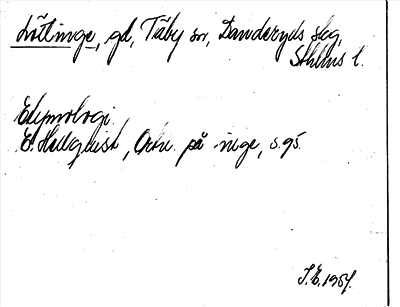 Löttinge, gd, Täby sn, Danderyds skg,
Sthlms l.
Etymologi.
E. Hellquist, Ortn. på -inge, s. 95.
S.E. 1954.